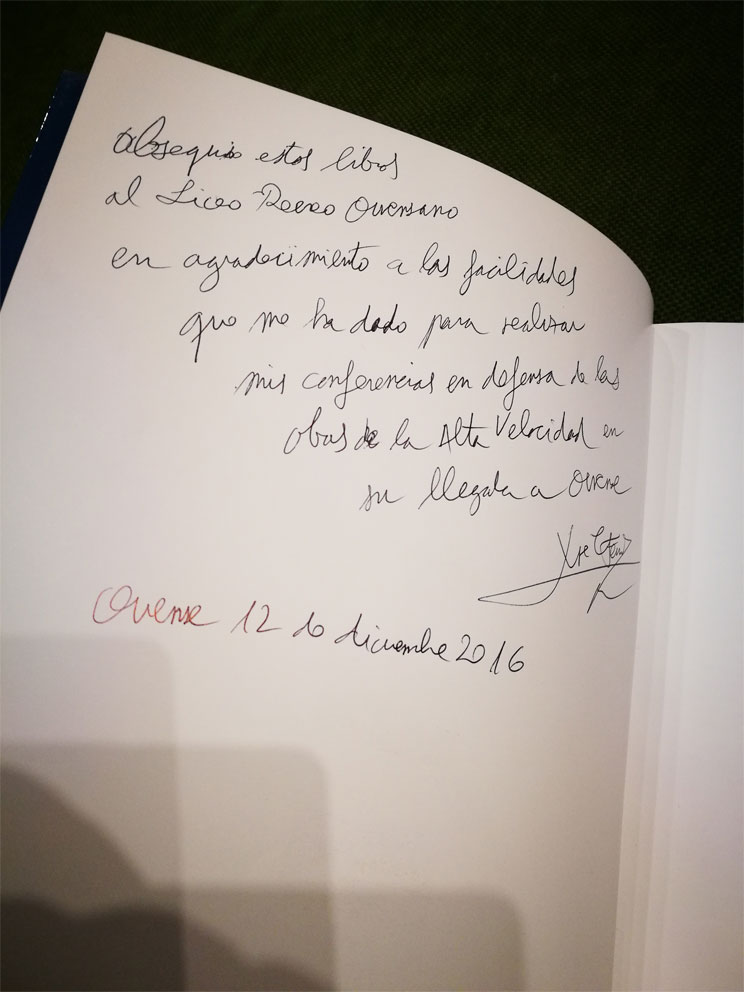 Obsequio estos libros
al Liceo Recreo Ourensano
en agradecimiento a las facilidades
que me ha dado para realizar
mis conferencias en defensa de las
obras de la Alta Velocidad en
su llegada a Ourense
Ourense 12 de diciembre 2016